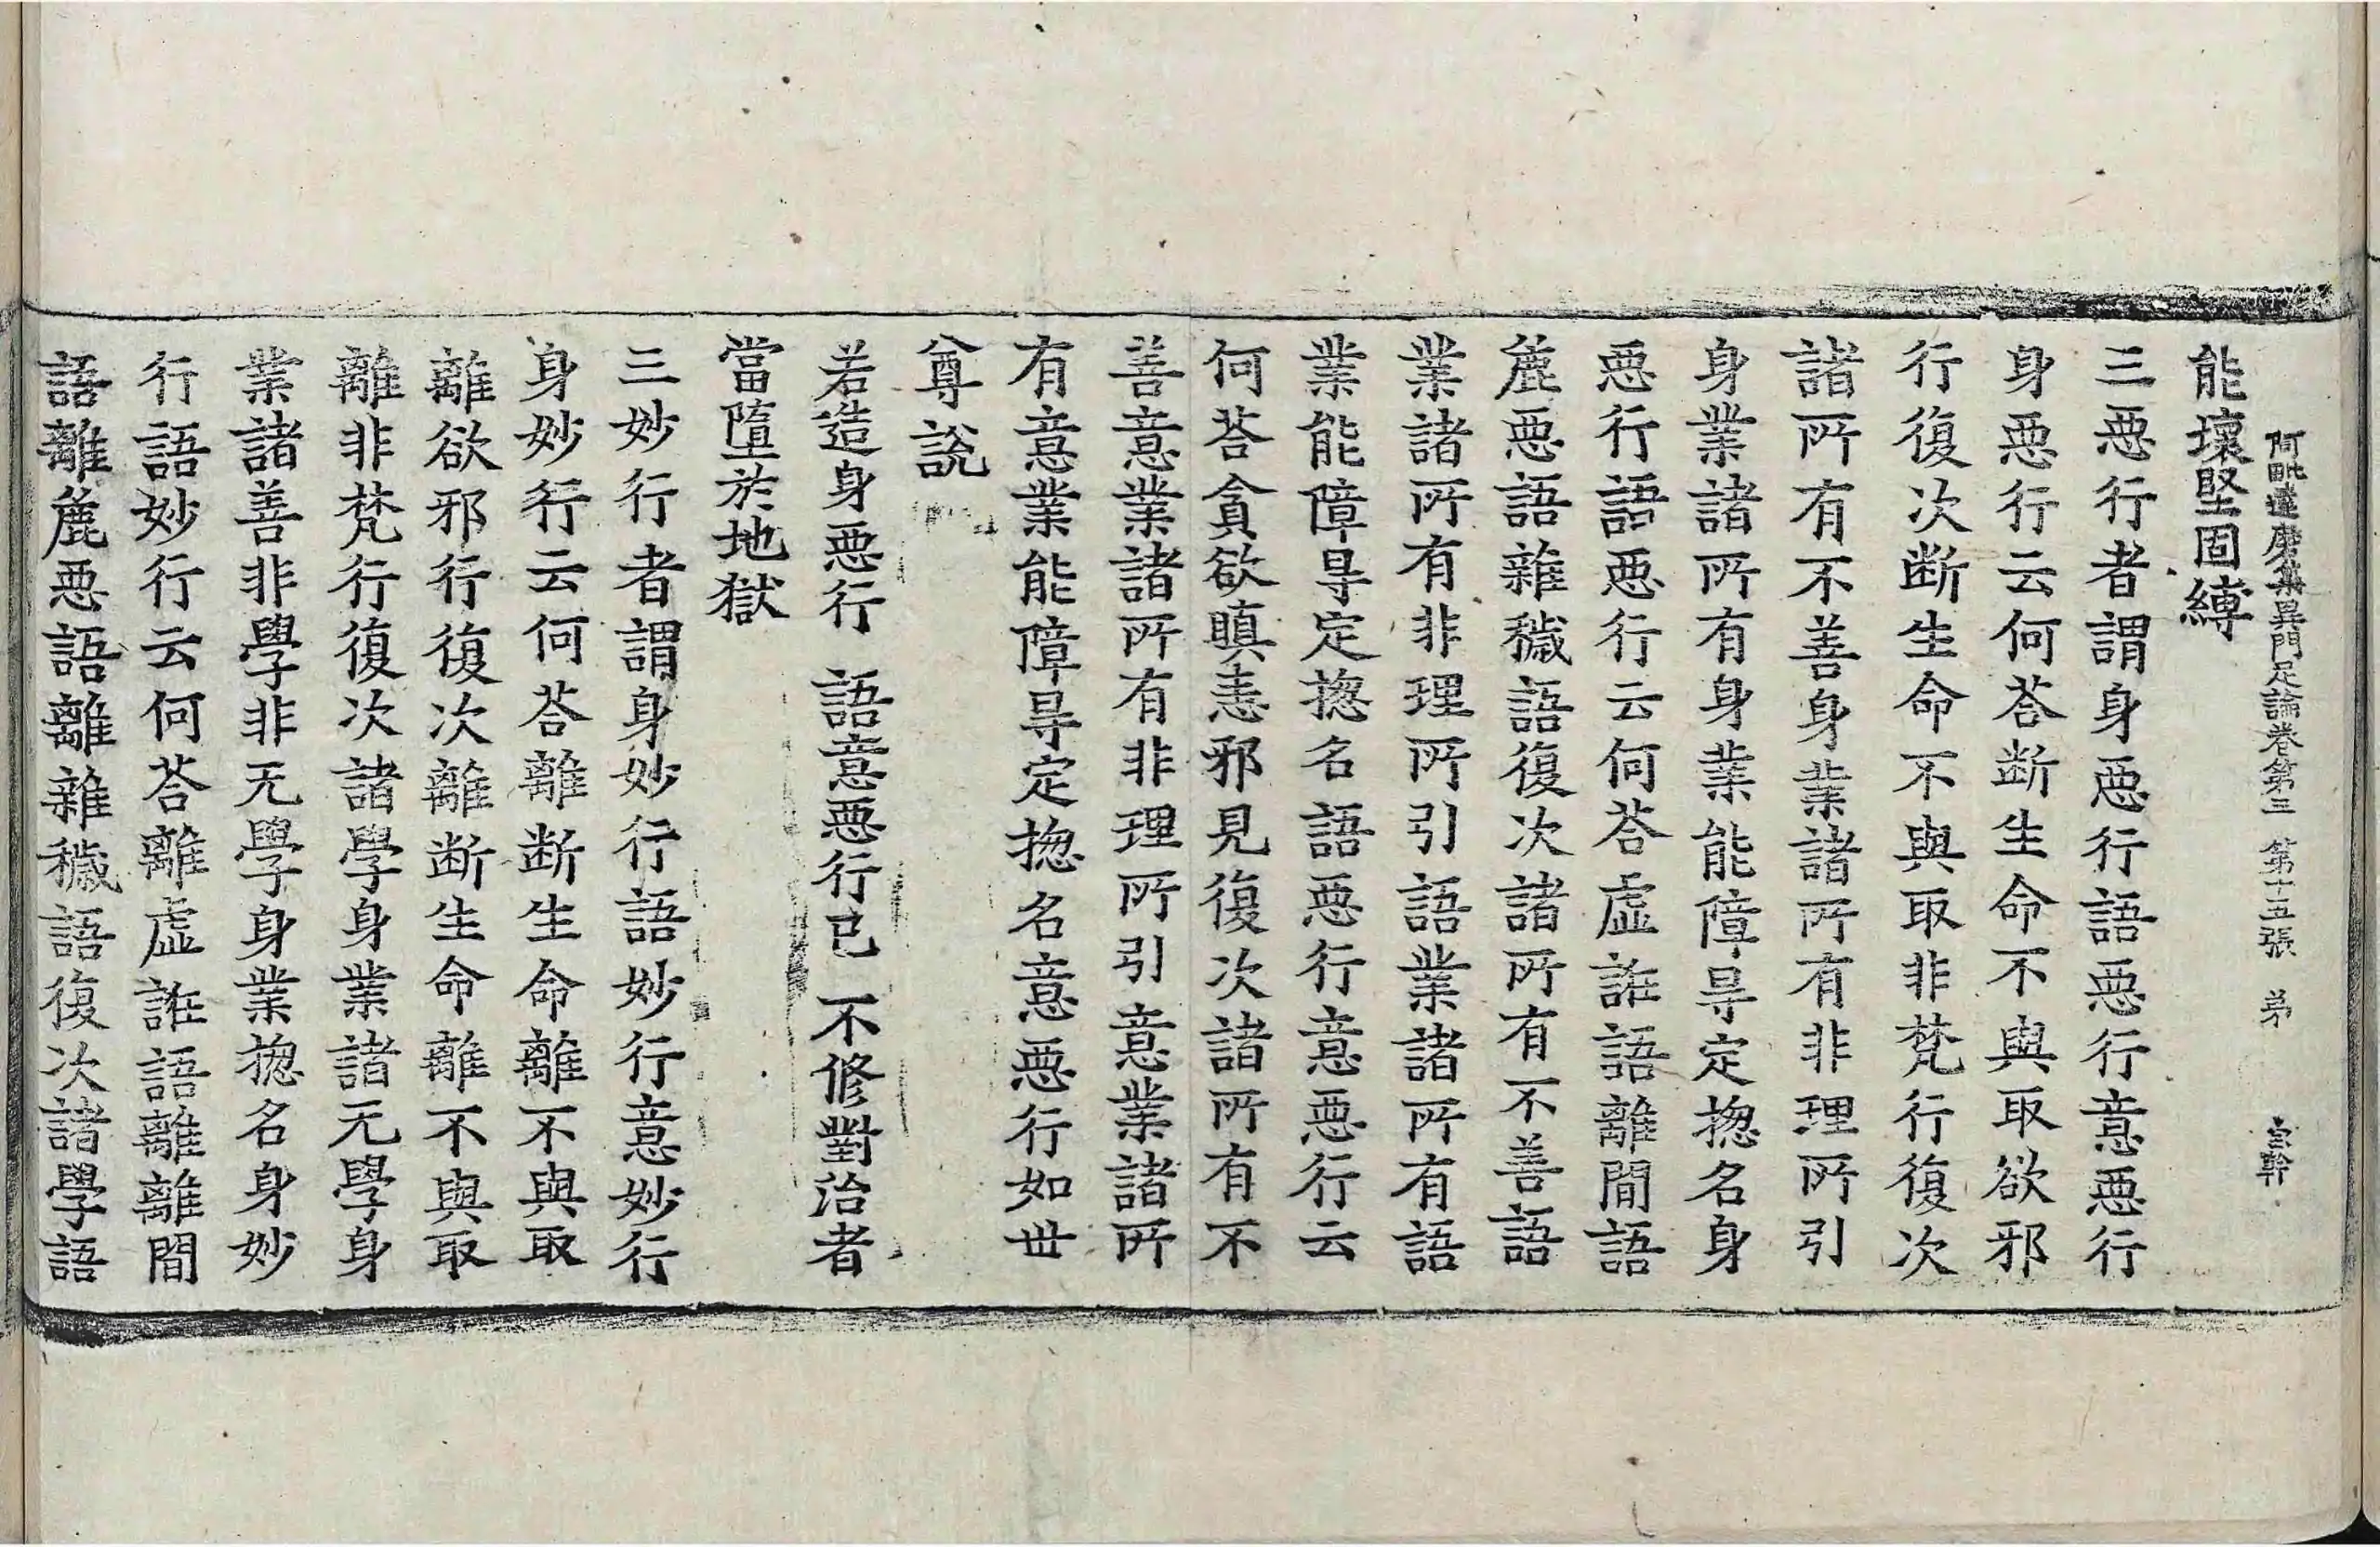 阿毗達磨集異門足論卷第三 第十五張 弟 宗幹
能壞堅固縛
三惡行者謂身惡行語惡行意惡行
身惡行云何荅断生命不與取欲邪
行復次断生命不與取非梵行復次
諸所有不善身業諸所有非理所引
身業諸所有身業能障㝵定揔名身
惡行語惡行云何荅虛誑語離間語
麁惡語雜穢語復次諸所有不善語
業諸所有非理所引語業諸所有語
業能障㝵定揔名語惡行意惡行云
何荅貪欲瞋恚邪見復次諸所有不
善意業諸所有非理所引意業諸所
有意業能障㝵定揔名意惡行如世
尊說
若造身惡行 語意惡行已 不修對治者
當墮於地獄
三妙行者謂身妙行語妙行意妙行
身妙行云何荅離断生命離不與取
離欲邪行復次離断生命離不與取
離非梵行復次諸學身業諸无學身
業諸善非學非无學身業揔名身妙
行語妙行云何荅離虛誑語離離間
語離麁惡語離雜穢語復次諸學語